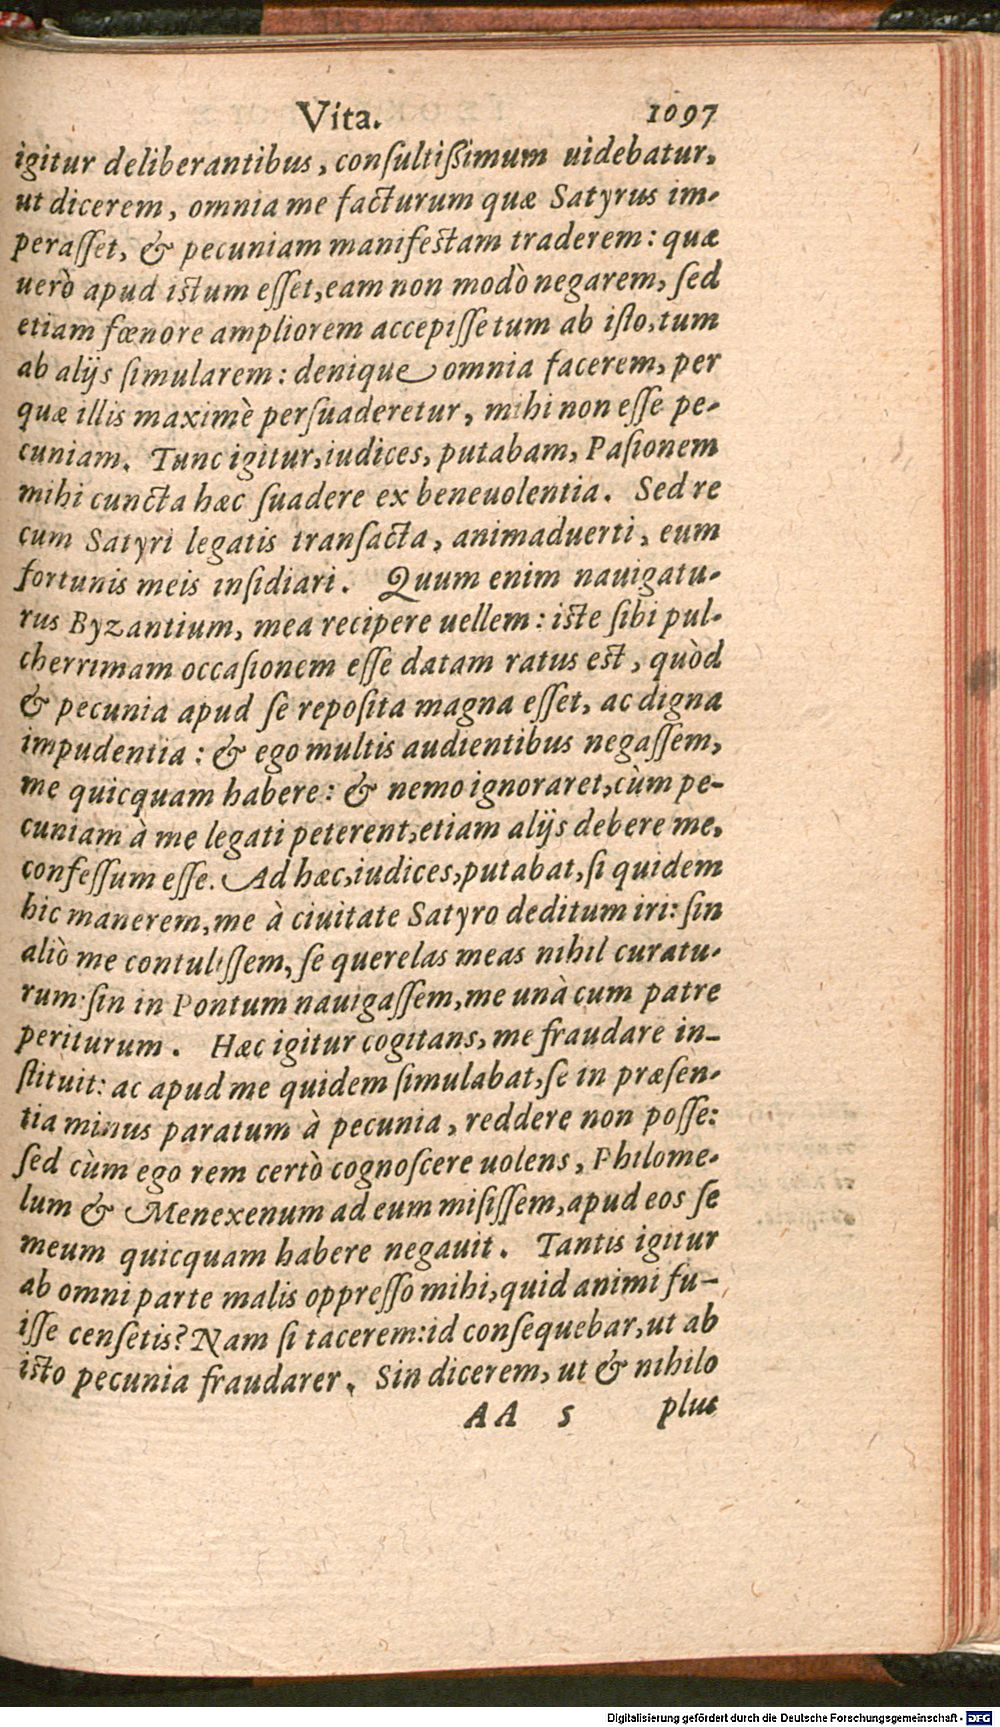 Vita. 1097
igitur deliberantibus, conſultißimum uidebatur,
ut dicerem, omnia me facturum quæ Satyrus im-
peraſſet, & pecuniam manifeſtam traderem: quæ
uerò apud iſtum eſſet, eam non modò negarem, ſed
etiam fœnore ampliorem accepiſſe tum ab iſto, tum
ab alijs ſimularem: denique omnia facerem, per
quæ illis maximè perſuaderetur, mihi non eſſe pe-
cuniam. Tunc igitur, iudices, putabam, Paſionem
mihi cuncta hæc ſuadere ex beneuolentia. Sed re
cum Satyri legatis tranſacta, animaduerti, eum
fortunis meis inſidiari. Quum enim nauigatu-
rus Byzantium, mea recipere uellem: iſte ſibi pul-
cherrimam occaſionem eſſe datam ratus eſt, quòd
& pecunia apud ſe repoſita magna eſſet, ac digna
impudentia: & ego multis audientibus negaſſem,
me quicquam habere: & nemo ignoraret, cùm pe-
cuniam à me legati peterent, etiam alijs debere me,
confeſſum eſſe. Ad hæc, iudices, putabat, ſi quidem
hic manerem, me à ciuitate Satyro deditum iri: ſin
aliò me contuliſſem, ſe querelas meas nihil curatu-
rum: ſin in Pontum nauigaſſem, me unà cum patre
periturum. Hæc igitur cogitans, me fraudare in-
ſtituit: ac apud me quidem ſimulabat, ſe in præſen-
tia minus paratum à pecunia, reddere non poſſe:
ſed cùm ego rem certò cognoſcere uolens, Philome-
lum & Menexenum ad eum miſiſſem, apud eos ſe
meum quicquam habere negauit. Tantis igitur
ab omni parte malis oppreſſo mihi, quid animi fu-
iſſe cenſetis? Nam ſi tacerem: id conſequebar, ut ab
iſto pecunia fraudarer. Sin dicerem, ut & nihilo
AA 5 plus
Digitalisierung gefördert durch die Deutsche Forschungsgemeinschaft - DFG